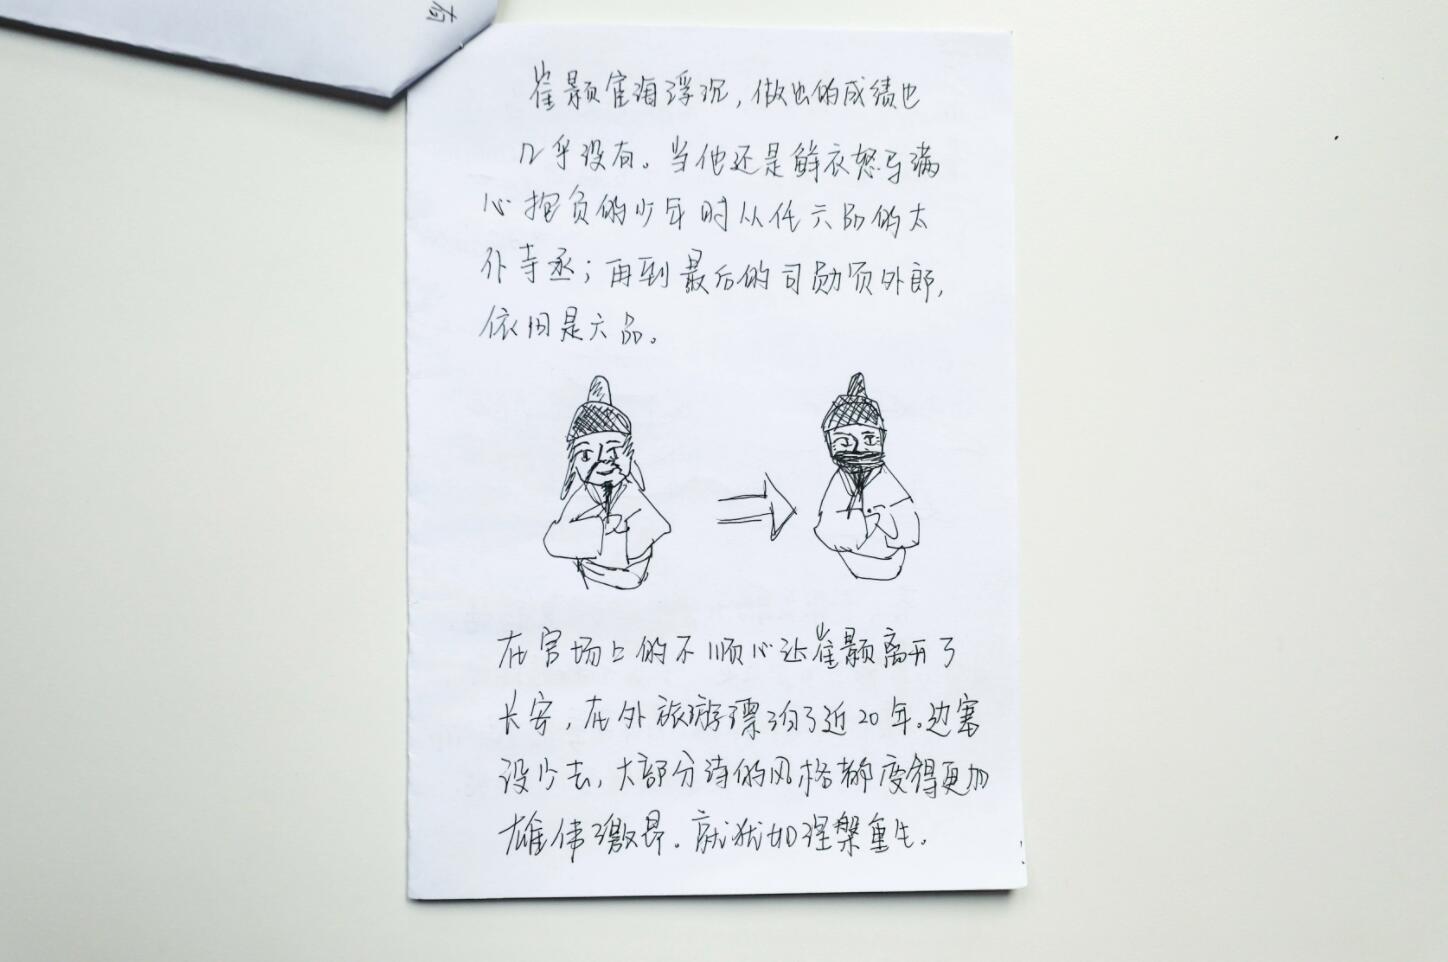 右
崔颢宦海浮沉,做出的成绩也
几乎没有。当他还是鲜衣怒马满
心抱负的少年时从任六品的太
仆寺丞;再到最后的司勋员外郎,
依旧是六品。
在官场上的不顺心让崔颢离开了
长安,在外旅游漂泊了近20年。边塞
没少去,大部分诗的风格都变得更加
雄伟激昂。就犹如涅槃重生。